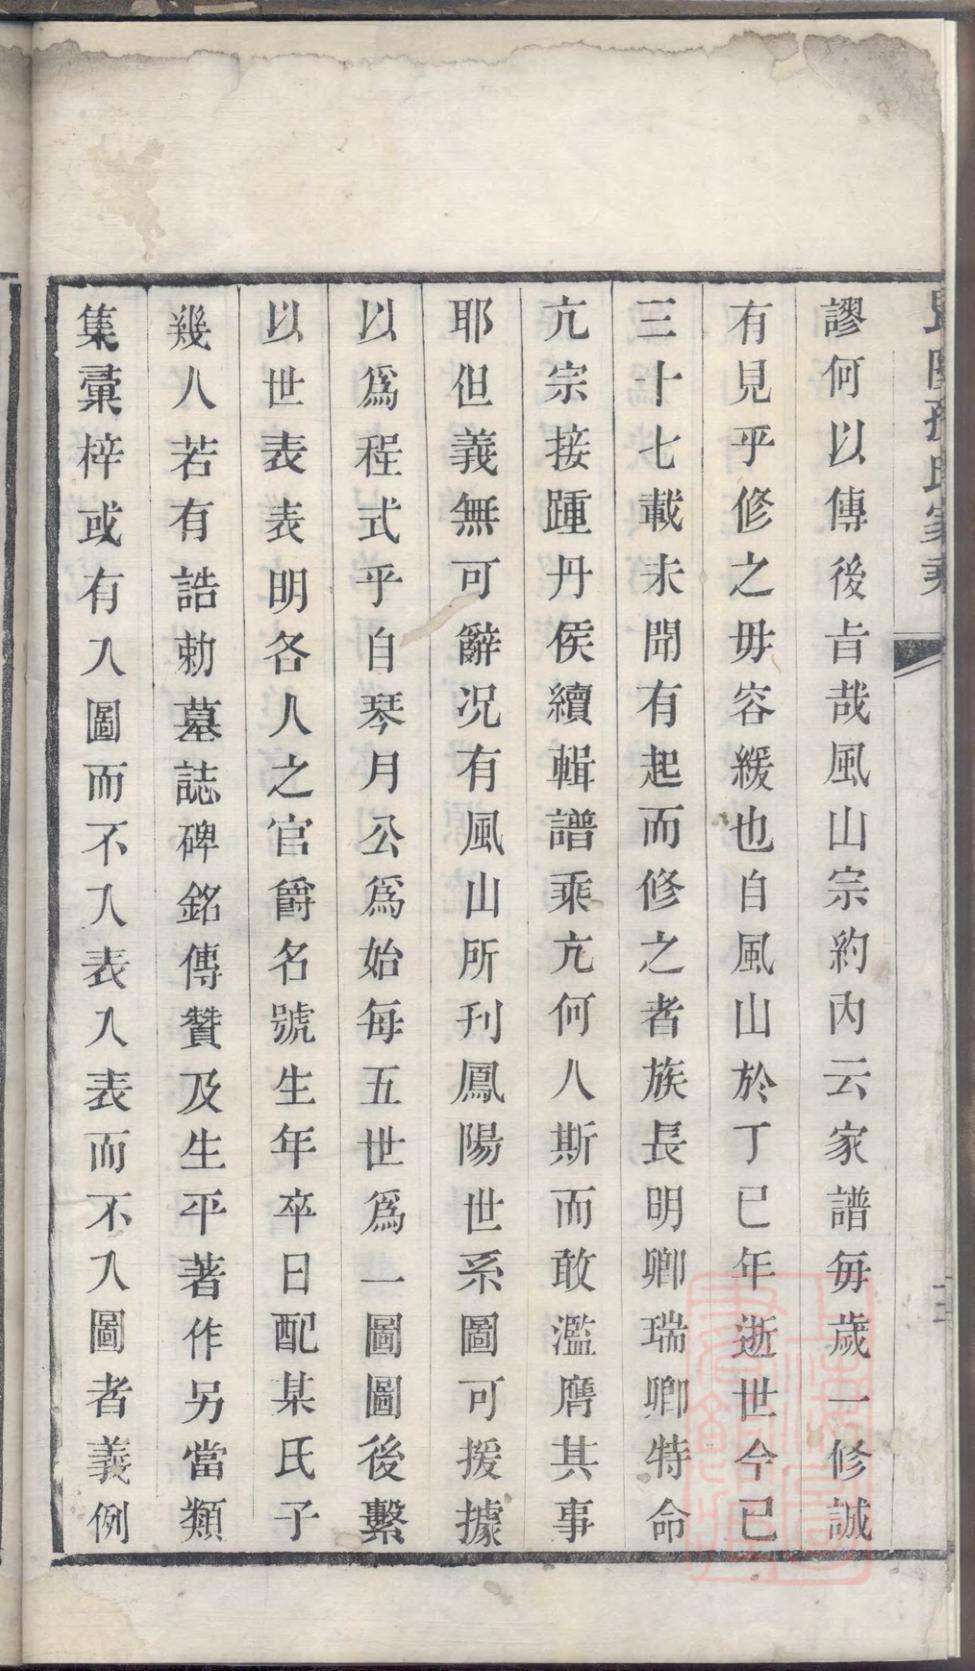 謬何以傳後㫖哉風山宗約内云家譜毎歲一修誠
有見乎修之毋容緩也自風山於丁巳年逝世今已
三十七載未聞有起而修之者族長明卿瑞卿特命
亢宗接踵丹侯續輯譜乘亢何人斯而敢濫膺其事
耶但義無可辭况有風山所刊鳳陽世系圖可援據
以爲程式乎自琴月公爲始毎五世爲一圖圖後繫
以世表表明各人之官爵名號生年卒日配某氏子
幾人若有誥勅墓誌碑銘傳贊及生平著作另當類
集彚梓或有入圖而不入表入表而不入圖者義例
孫氏家乘